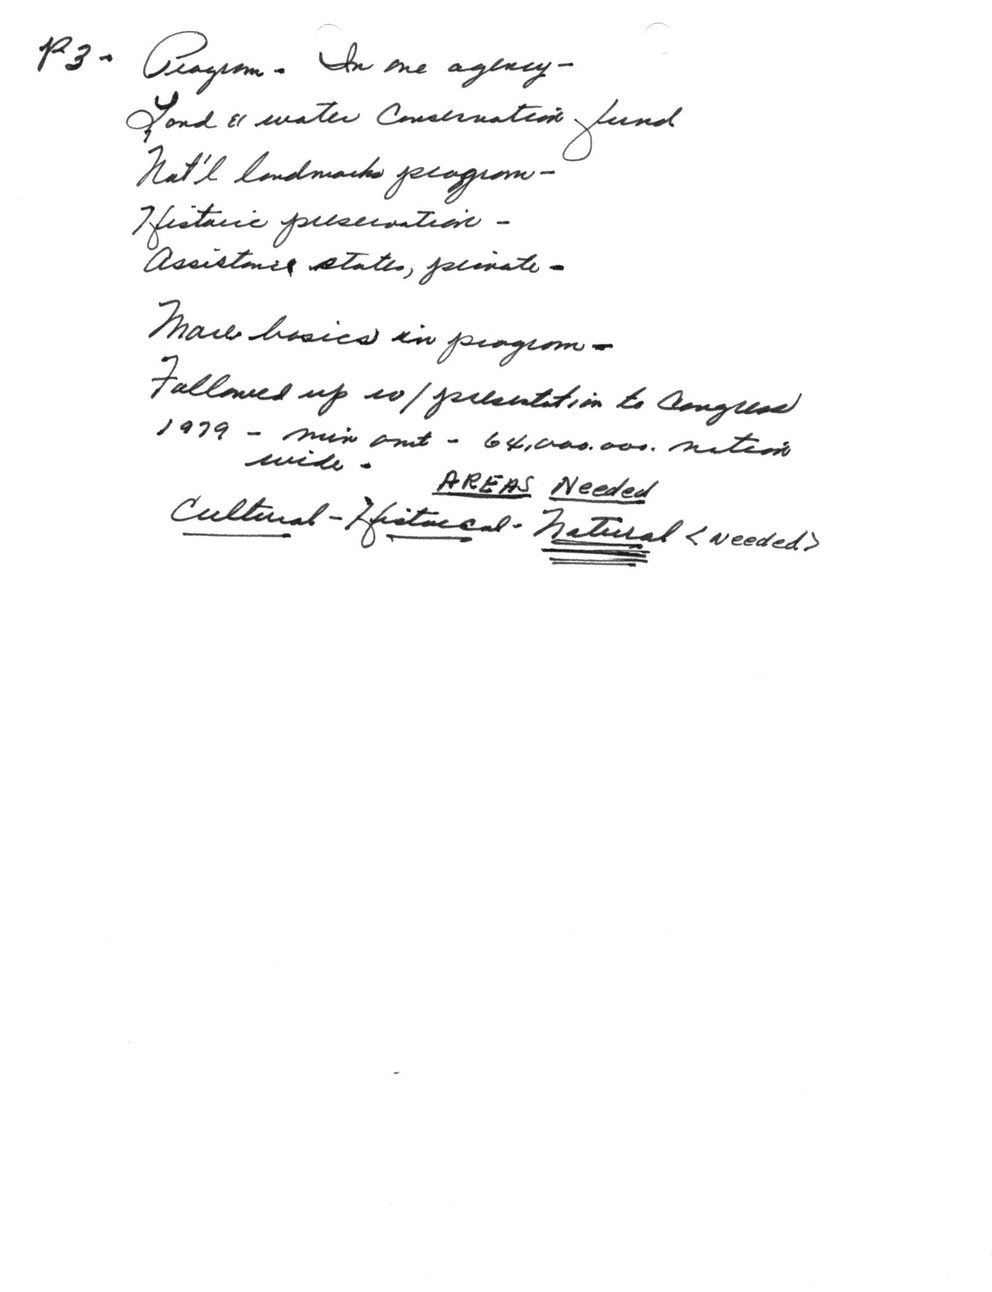 P3- Program- In one agency-
Land & water Conservation fund
Nat'l landmarks program-
Historic preservation -
Assistance states, private -
More basics in program -
Followed up w/ presentation to Congress
1979 - min amt - 64,000.000. nation
wide -
AREAS Needed
Cultural - Historical - Natural <Needed>